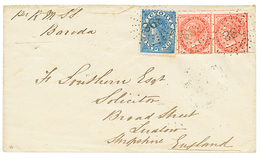 per R.M.SS
Baroda
F. Southern Esqr
Solicitor
Broad Street
Ludlow
Shropshire
England